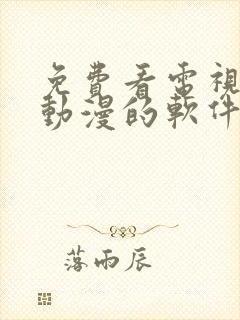 免費看電視
動漫的軟件
落雨辰